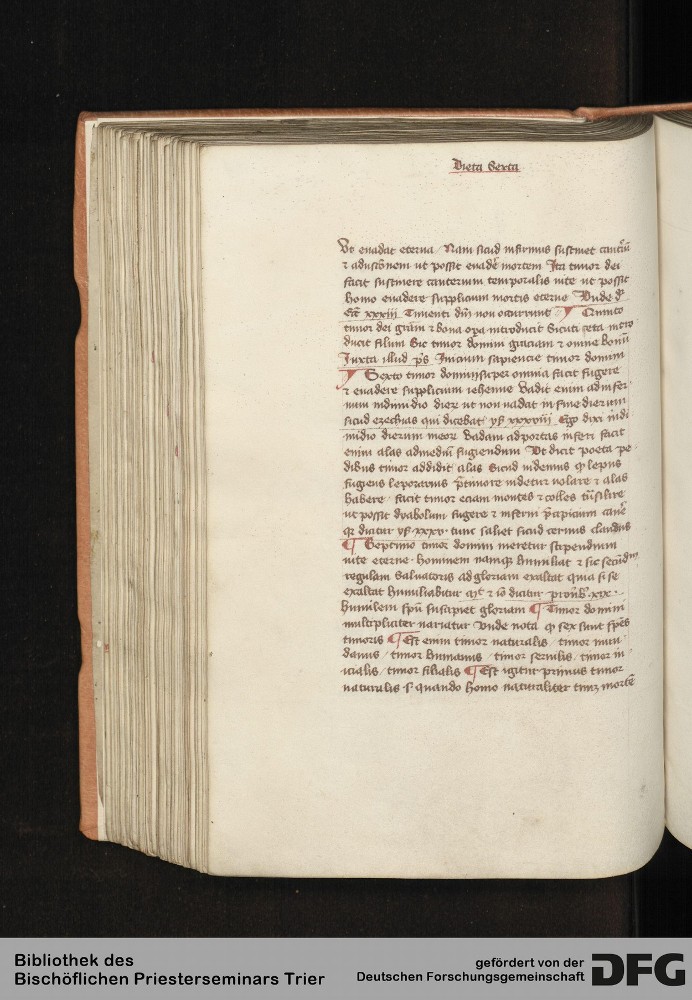 Dieta Sexta
Vt euadat eterna / Nam sicud infirmus sustinet cauteriū
⁊ adustōnem ut possit euadē mortem Ita timor dei
facit sustinere cauterium temporalis uite ut possit
homo euadere supplicium mortis eterne Vnde dr̄
Ecc̄ xxxiii Timenti dm̄ non occurrunt ¶ Quinto
timor dei grām ⁊ bona opa introducit Sicuti seta intro
ducit filum Sic timor domini graciam ⁊ omne bonū
Iuxta illud ps̄ Inicium sapiencie timor domini
¶ Sexto timor domini super omnia facit fugere
⁊ euadere supplicium iehenne Vadit enim ad infer
num in dimidio dierꝝ ut non uadat in fine dierum
sicud ezechias qui dicebat ys̄ xxxviii Ego dixi in di
midio dierum meoꝝ Vadam ad portas inferi facit
enim alas ad fugiendum Vt dicit poeta pe
dibus timor addidit alas Sicud uidemus ꝙ lepus
fugiens leporarius p̄ timore uidetur uolare ⁊ alas
habere · facit timor eciam montes ⁊ colles tūsilire
ut possit dyabolum fugere ⁊ inferni p̄cipicium cauē
qꝛ dicitur ys̄ xxxv · tunc saliet sicud ceruus claudus
¶ Septimo timor domini meretur stipendium
uite eterne · hominem namqꝫ humiliat ⁊ sic secūdm̄
regulam Saluatoris ad gloriam exaltat quia si se
exaltat humiliabitur ⁊c̄ ⁊ iō dicitur prouerb̄ xix ·
humilem spū suscipiet gloriam ¶ Timor domini
multipliciter uariatur Vnde nota ꝙ sex sunt spēs
timoris ¶ Est enim timor naturalis / timor mun
danus / timor humanus / timor seruilis / timor in
icialis / timor filialis ¶ Est igitur primus timor
naturalis · s · quando homo naturaliter timꝫ mortē
Bibliothek des
Bischöflichen Priesterseminars Trier
gefördert von der
Deutschen Forschungsgemeinschaft
DFG